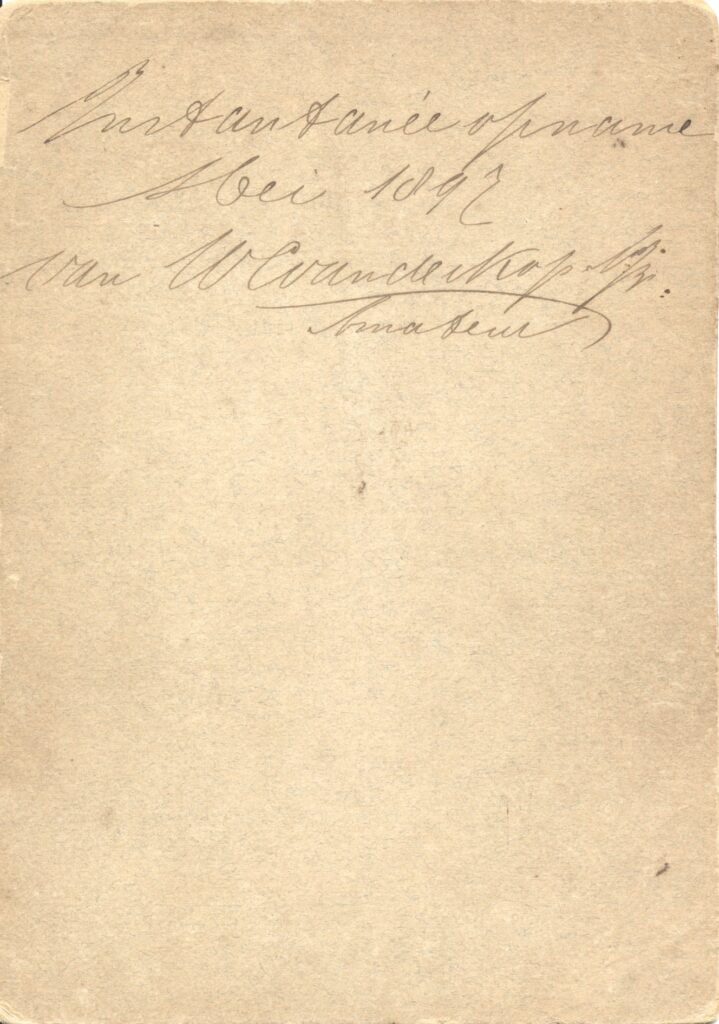 Instantanée opname
Mei 1897
van W C van der Kop
Amateur